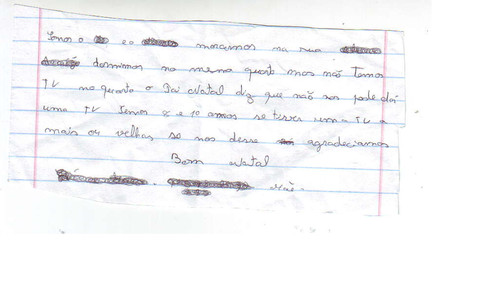 Somos o e o moramos na rua
dormimos no mesmo quarto mos não Temos
TV no quarto o Pai Natal diz que não nos pode dá
uma TV temos 8 e 10 anos se tever uma TV a
mais ou velhas se nos desse agradeciamos
Bom Natal